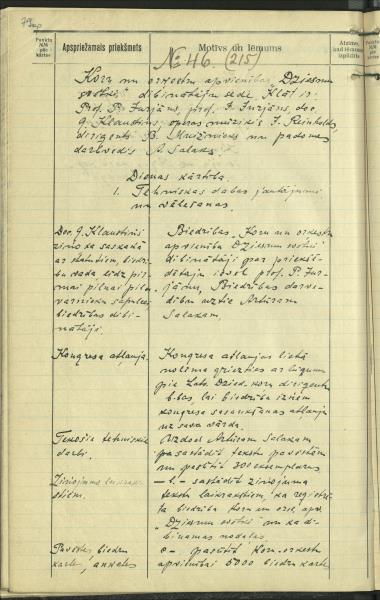 79
Punkta №№ pēc kārtas
Apspriežamais priekšmets
Motīvs un lēmums
Atzīme, kad lēmums izpildīts
№ 46. (215)
Koru un orkestru apvienības "Dziesmu
svētki" dibinātāju sēde. Klāt ir:
Prof. P. Jurjāns, prof. J. Jurjāns, doc.
J. Klaustiņš, operas mūziķis J. Reinholds,
diriģents B. un padomes
darbvedis A. Salaks.
Dienas kārtība.
1. Techniskas dabas jautājumi
un vēlēšanas.
Doc. J. Klaustiņš
ziņo ka saskaņā
ar statutiem, biedrī-
bu vada līdz pir-
mai pilnai piln-
varnieku sapulcei
biedrības dibi-
nātāji.
Biedrības "Koru un orkestru
apvienība Dziesmu svētki"
dibinātāji par priekš-
sēdētāju ievēl prof. P. Jur-
jānu, Biedrības darve-
dību uztic Artūram
Salakam.
Kongresa atļauja.
Kongresa atļaujas lietā
nolēma griezties ar lūgumu
pie Latv. Dzied. koru diriģentu
b-bas, lai biedrība izņem
kongresa sasaukšanas atļauju
uz sava vārda.
Tekošie techniskie
darbi.
Uzdod Artūram Salakam
sastādīt tekstu pavēstēm
un pasūtīt 300 eksemplarus
Ziņojums laikrak-
stiem.
— " — sastādīt ziņojuma
tekstu laikrakstiem, ka reģistrē-
ta biedrība Koru un ork. apv.
"Dziesmu svētki" un ka di-
bināmas nodaļas.
Pavēstes, biedru
karte, anketes
pasūtīt Koru-orkestru
apvienībai 5000 biedru karte